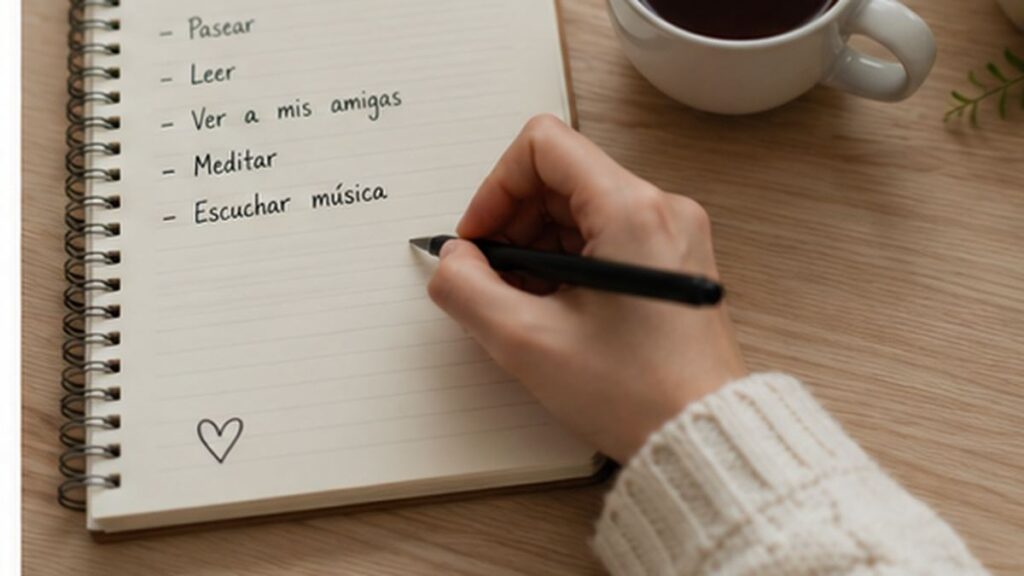 - Pasear
- Leer
- Ver a mis amigas
- Meditar
- Escuchar música